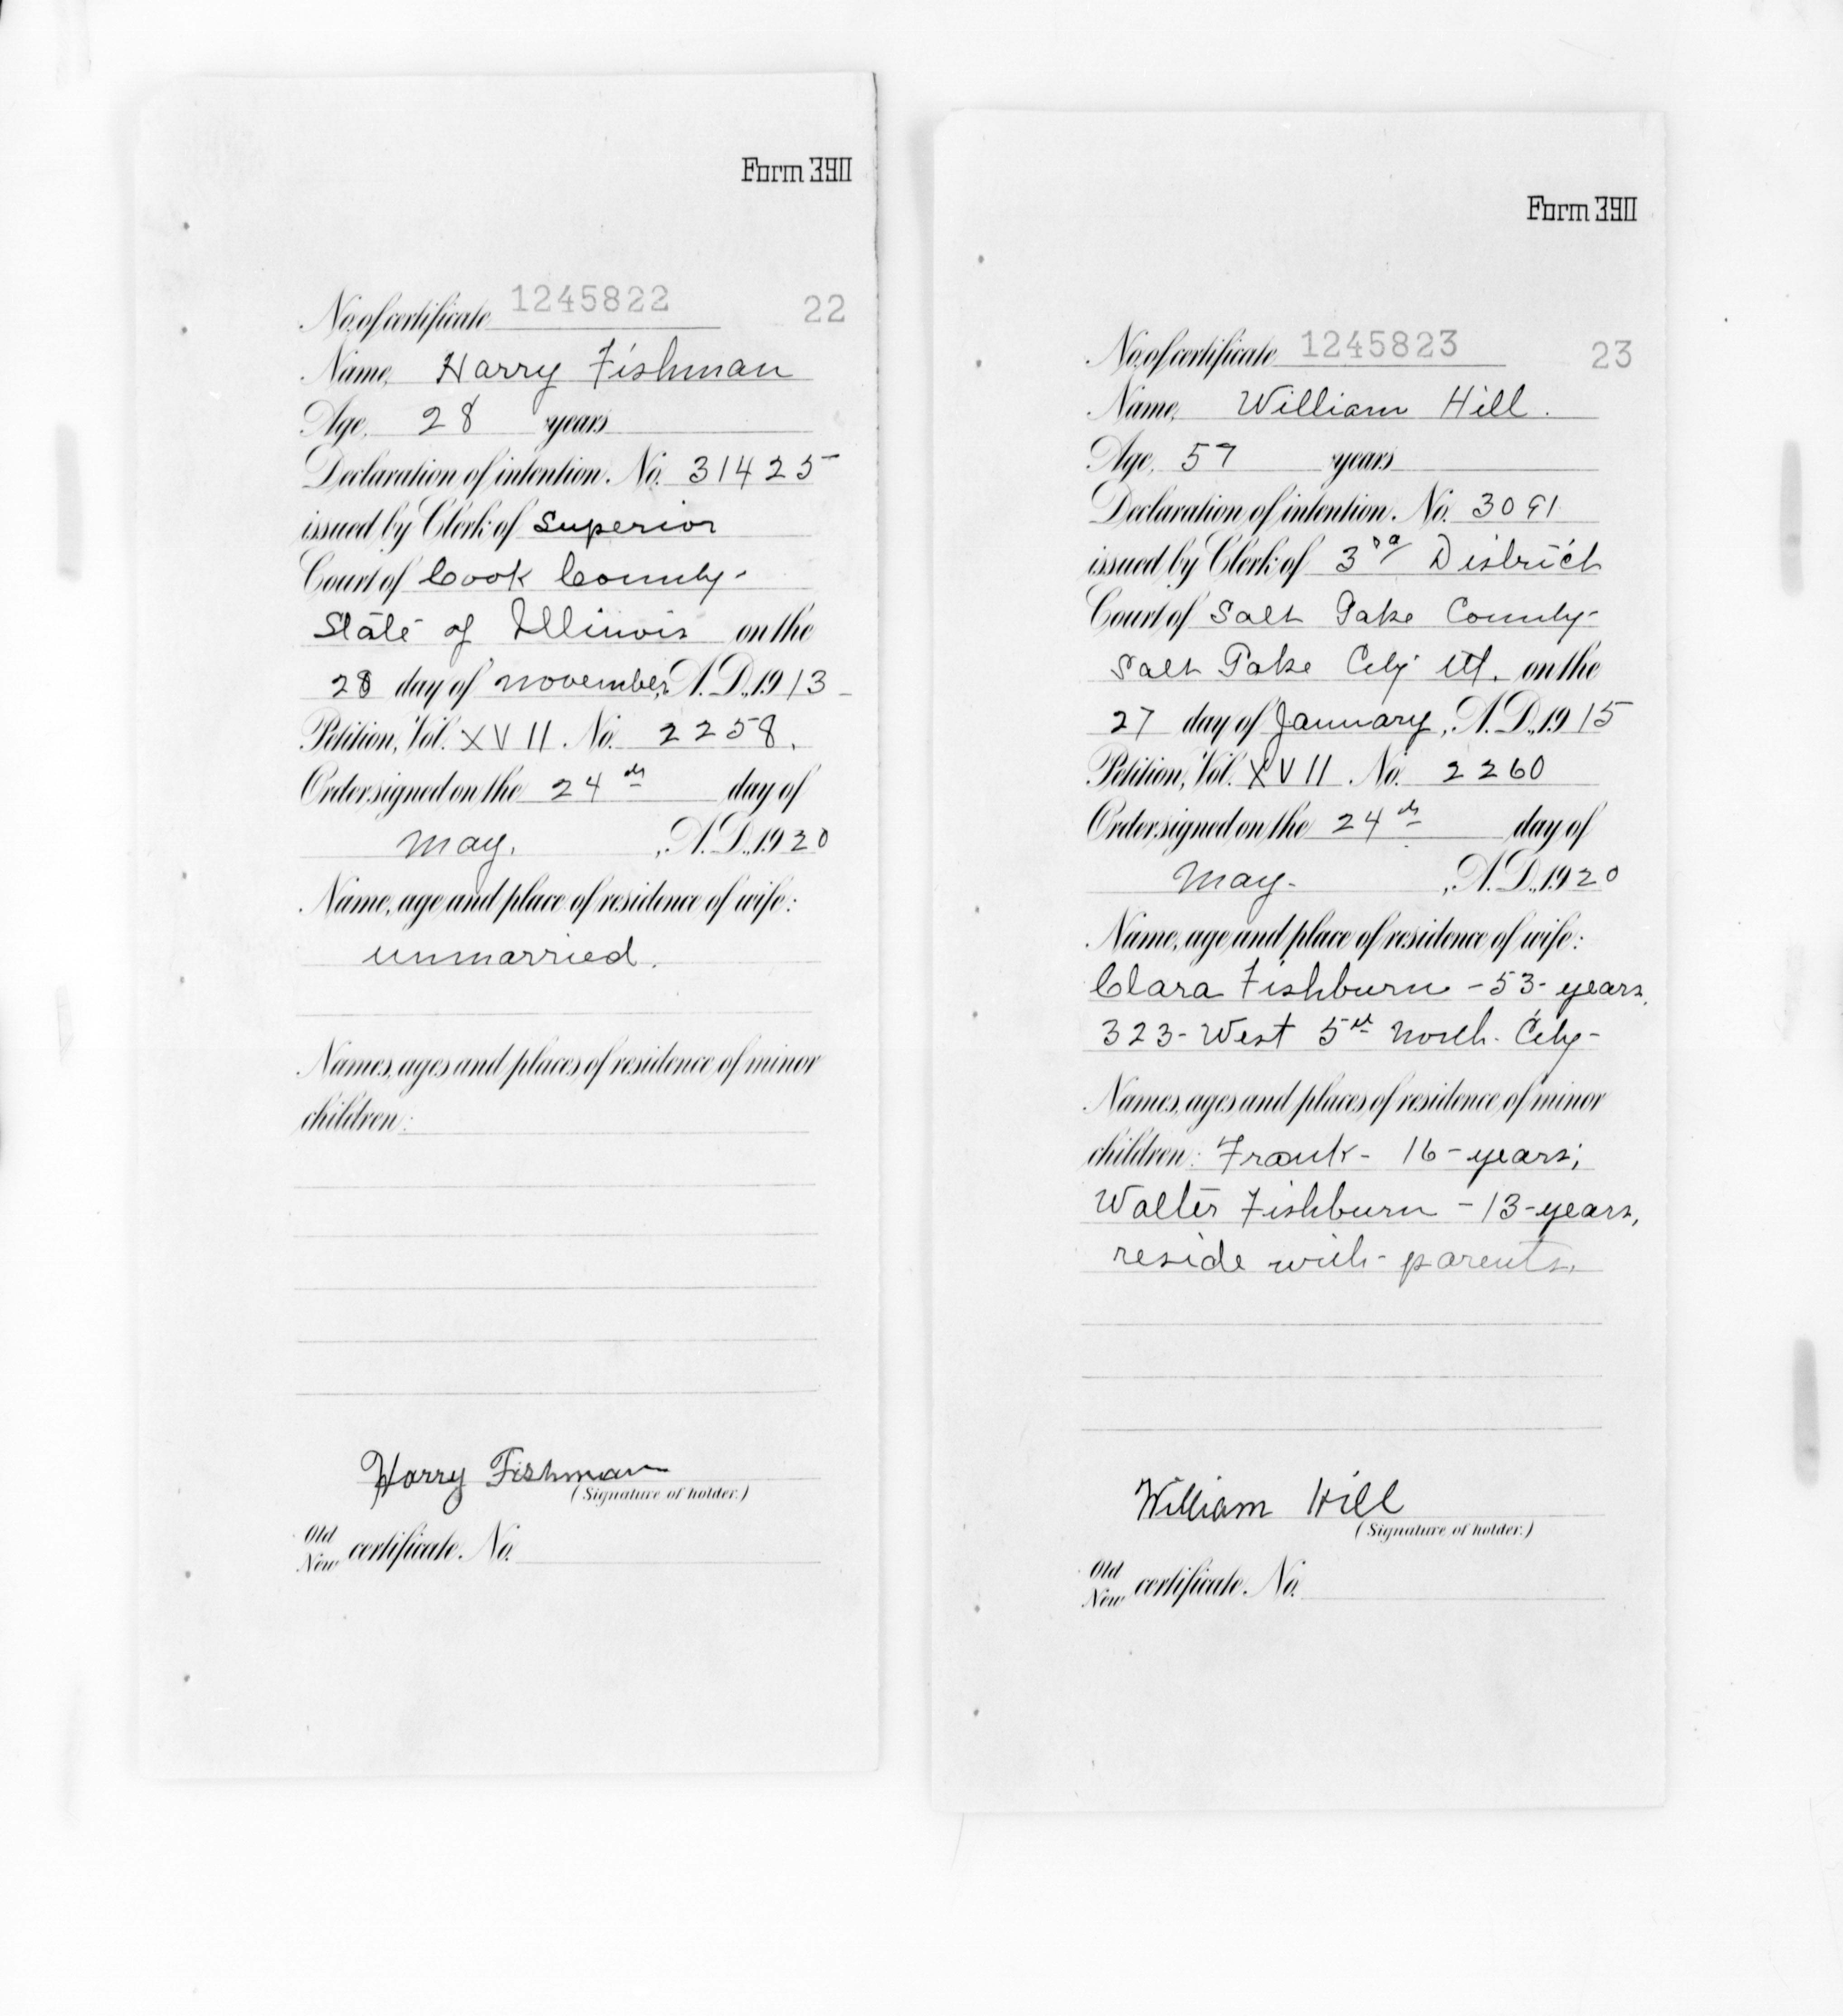 Form 390
No. of certificate 1245822 22
Name, Harry Fishman
Age, 28 years
Declaration of intention. No. 31425
issued by Clerk of Superior
Court of Cook County-
State of Illinois on the
28 day of November, A.D., 1913
Petition, Vol. XVII No. 2258.
Order signed on the 24th day of
May, , A.D., 1920
Name, age and place of residence of wife:
unmarried.
Names, ages and places of residence of minor
children:
Harry Fishman
(Signature of holder.)
Old
New certificate. No.
Form 390
No. of certificate 1245823 23
Name, William Hill.
Age, 57 years
Declaration of intention. No. 3091
issued by Clerk of 3rd District
Court of Salt Lake County-
Salt Lake City Ut. on the
27 day of January, A.D., 1915
Petition, Vol. XVII No. 2260
Order signed on the 24th day of
May- , A.D., 1920
Name, age and place of residence of wife:
Clara Fishburn - 53- years,
323- West 5th North- City-
Names, ages and places of residence of minor
children: Frank- 16- years;
Walter Fishburn - 13- years,
reside with- parents.
William Hill
(Signature of holder.)
Old
New certificate. No.